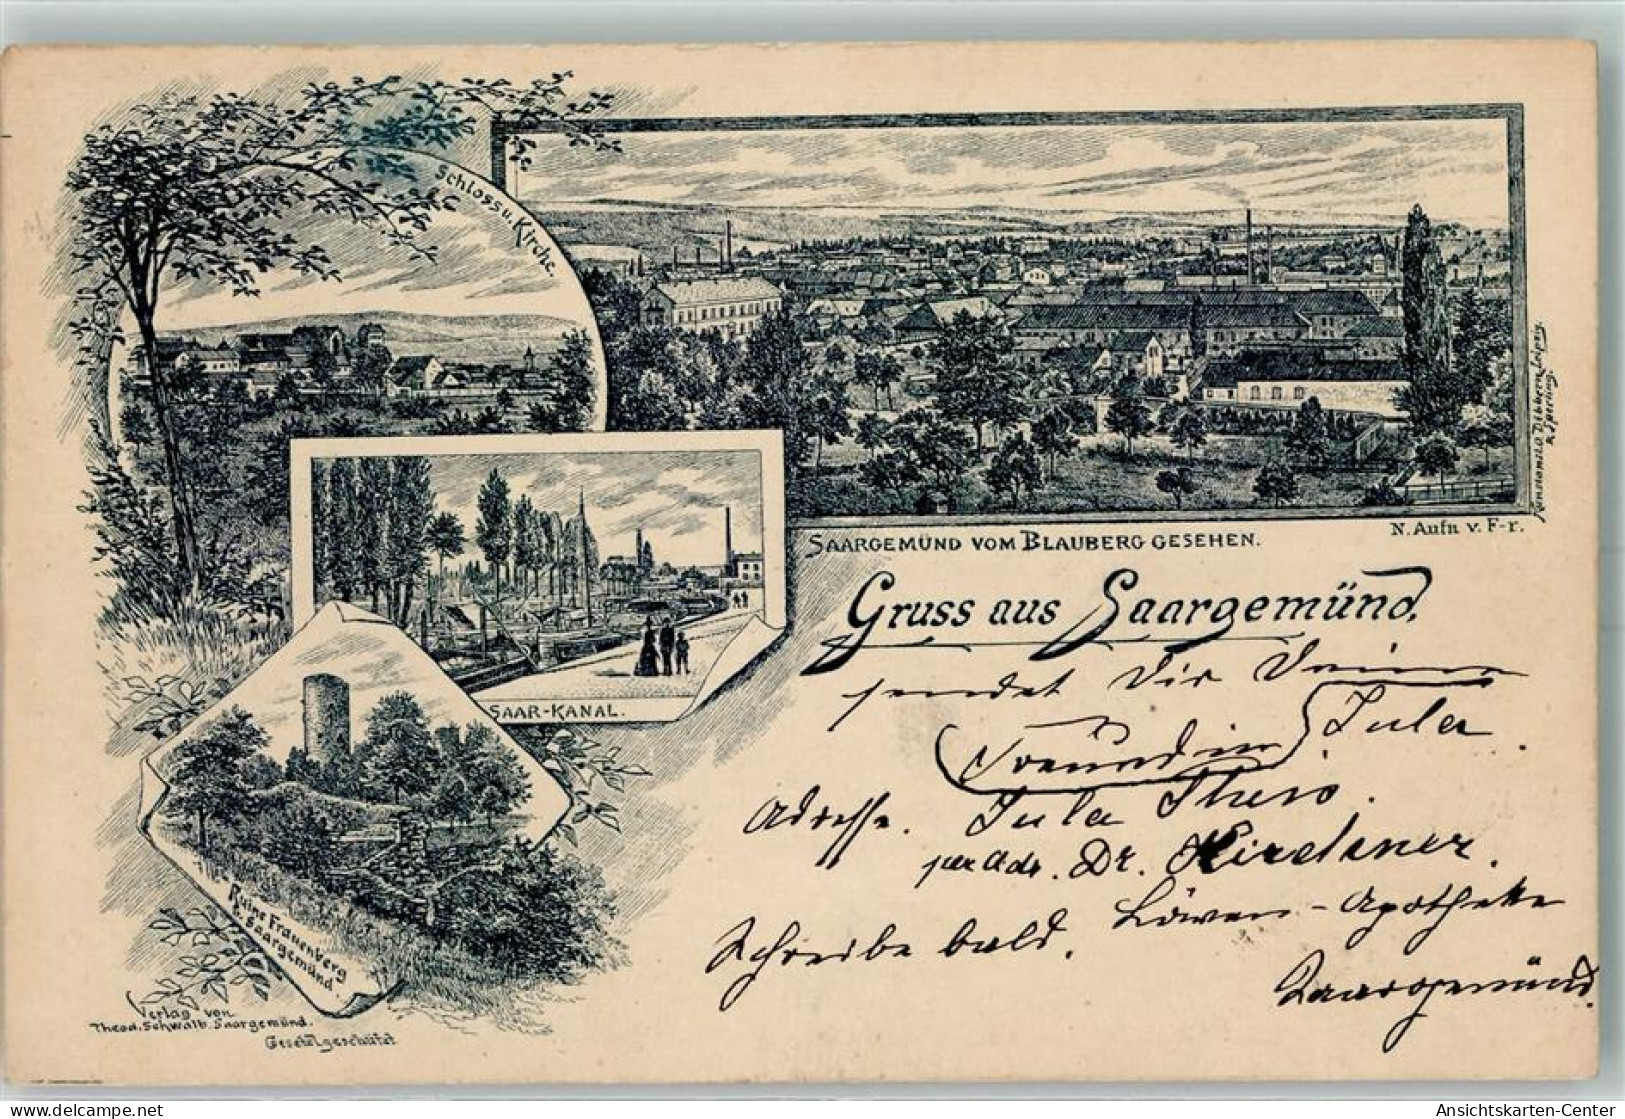 Schloss u. Kirche.
SAARGEMÜND VOM BLAUBERG GESEHEN.
N. Aufn v. F-r.
SAAR-KANAL.
Ruine Frauenberg
b. Saargemünd
Verlag von
Theod. Schwalb. Saargemünd.
Gesetzl geschützt
Gruss aus Saargemünd.
sendet Dir Deine
Freundin Jula.
Adresse. Jula Theis.
per Adr. Dr. Kirchner.
Löwen-Apotheke
Schreibe bald.
Saargemünd.
delcampe.net
Ansichtskarten-Center